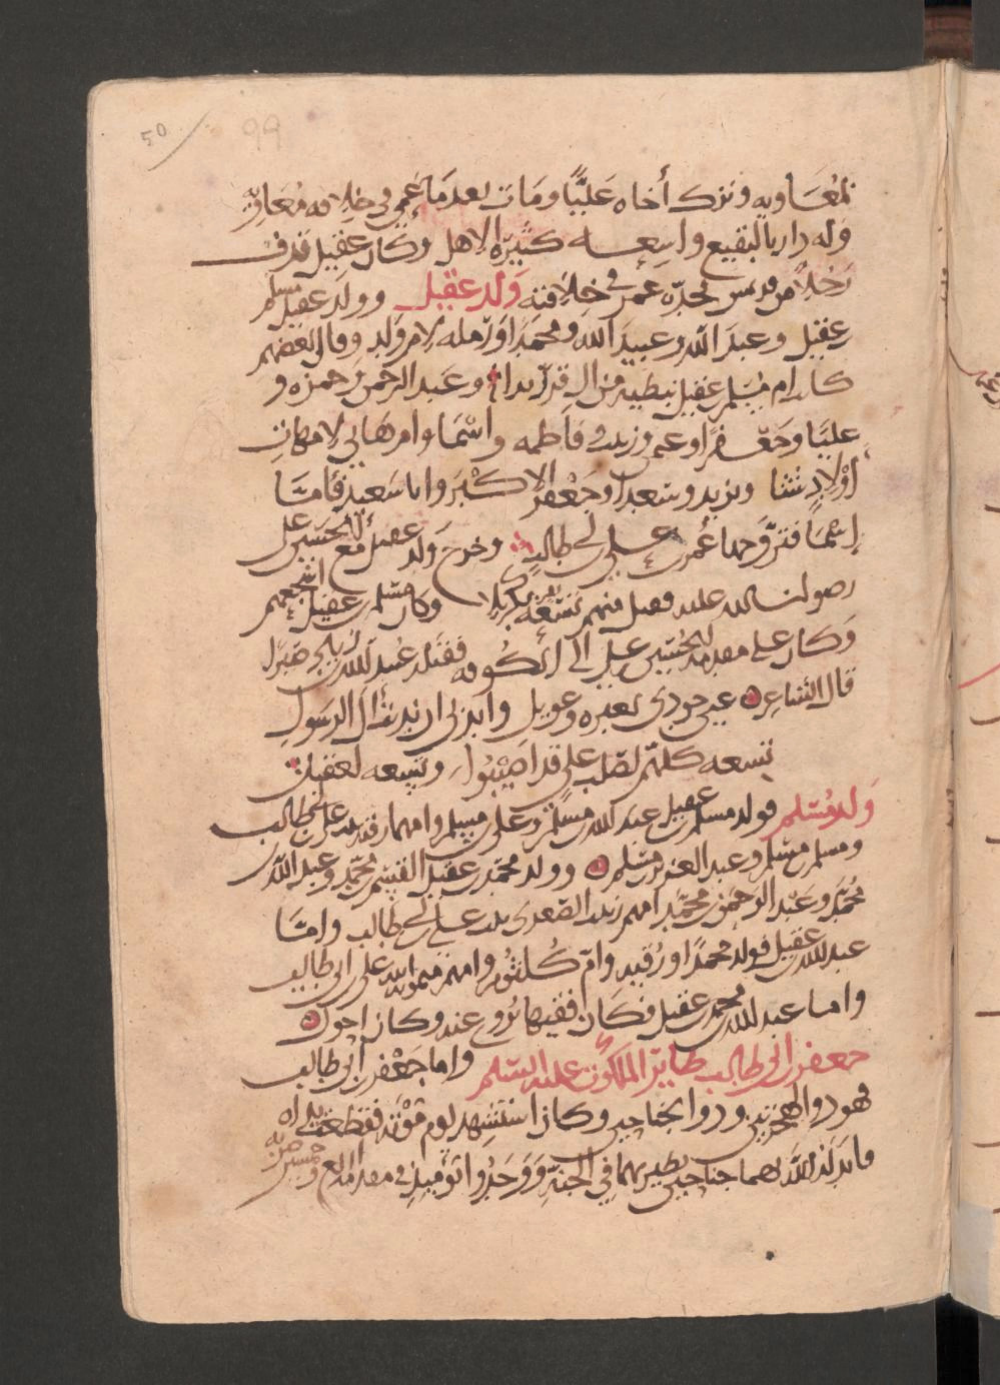 50 99
لمعاويه وترك أخاه عليًّا ومات بعد ما عمي في خلافه معاويه
وله دار بالبقيع واسعه كثيره الاهل وكان عقيل قدف
رَجُلاً من قريش فحدّه عمر في خِلافته وَلد عقيل وولد عقيل مسلم
بن عقيل وعبد الله وعبيد الله ومحمدا ورمله لام ولد وقال بعضهم
كانت ام مسلم بن عقيل نبطيه من ال وعبد الرحمن وحمزه و
عليًا وجعفرًا وعمر وزينب وفاطمه واسما وام هاني لامهات
اولاد شتا ويزيد وسعدا وجعفر الاكبر وابا سعيد فامّا
اسما فتزوجها عمر بن علي بن ابي طالب وخرج ولد عقيل مع الحسين بن علي
رضوان الله عليه فقتل منهم تسعه بكربلا وكان مسلم بن عقيل اشجعهم
وكان على مقدمه الحسين بن علي الى الكوفه فقتله عبيد الله بن زياد صبرًا
قال الشاعر عين جودي بعبره وعويل واندبي ان ندبت ال الرسول
تسعه كلهم لصلب علي قد اصيبوا وتسعه لعقيل
وَلد مُسْلم فولد مسلم بن عقيل عبد الله بن مسلم وعلي بن مسلم وامهما رقيه بنت علي بن ابي طالب
ومسلم بن مسلم وعبد العزيز بن مسلم وولد محمد بن عقيل القسم بن محمد وعبد الله بن
محمد وعبد الرحمن بن محمد امهم زينب الصغرى بنت علي بن ابي طالب وامّا
عبد الله بن عقيل فولد محمدًا ورقيه وام كلثوم وامهم ميمونه ابنه علي بن ابي طالب
واما عبد الله بن محمد بن عقيل فكان فقيها يُروى عنه وكان احول
جعفر بن ابي طالب طاير الملكوت عليه السلم واما جعفر بن ابي طالب
فهو ذو الهجرتين وذو الجناحين وكان استشهد يوم مؤته فقطعت يداه
فابدله الله بهما جناحين يطير بهما في الجنه ووجدوا يومئذ في مقدمه اربع وخمسين ضربه